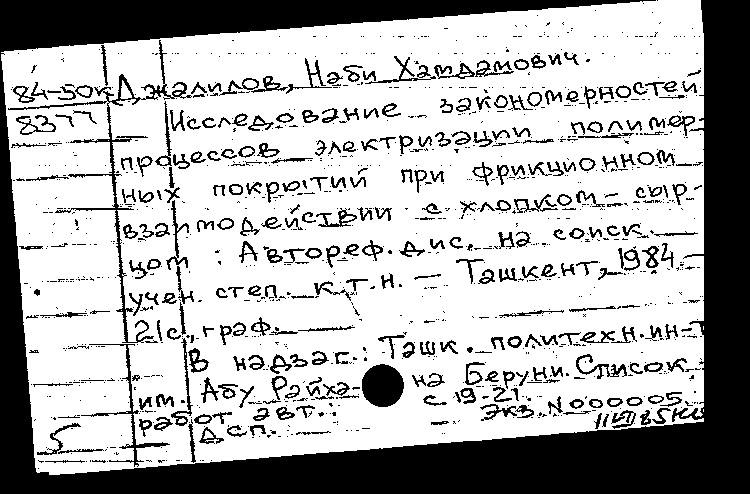 84-50к Джалилов, Наби Хамдамович.
8377 Исследование закономерностей
процессов электризации полимер-
ных покрытий при фрикционном
взаимодействии с хлопком-сыр-
цом : Автореф. дис. на соиск.
учен. степ. к.т.н. — Ташкент, 1984 —
21с., граф.
В надзаг.: Ташк. политехн. ин-т
им. Абу Райха- на Беруни. Список
работ авт.: с 19-21.
Дсп. Экз. N 000005.
5